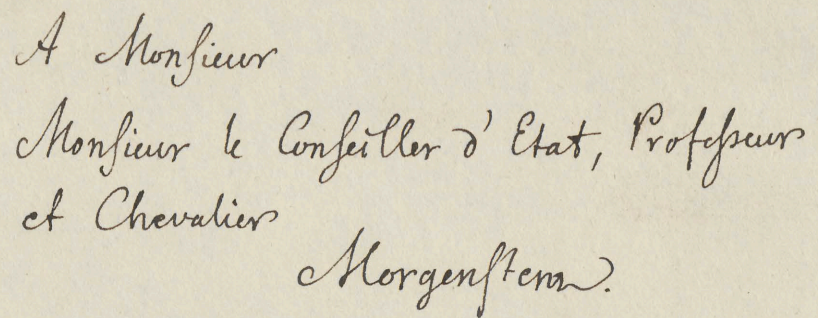 A Monsieur
Monsieur le Conseiller d'Etat, Professeur
et Chevalier
Morgenstern.